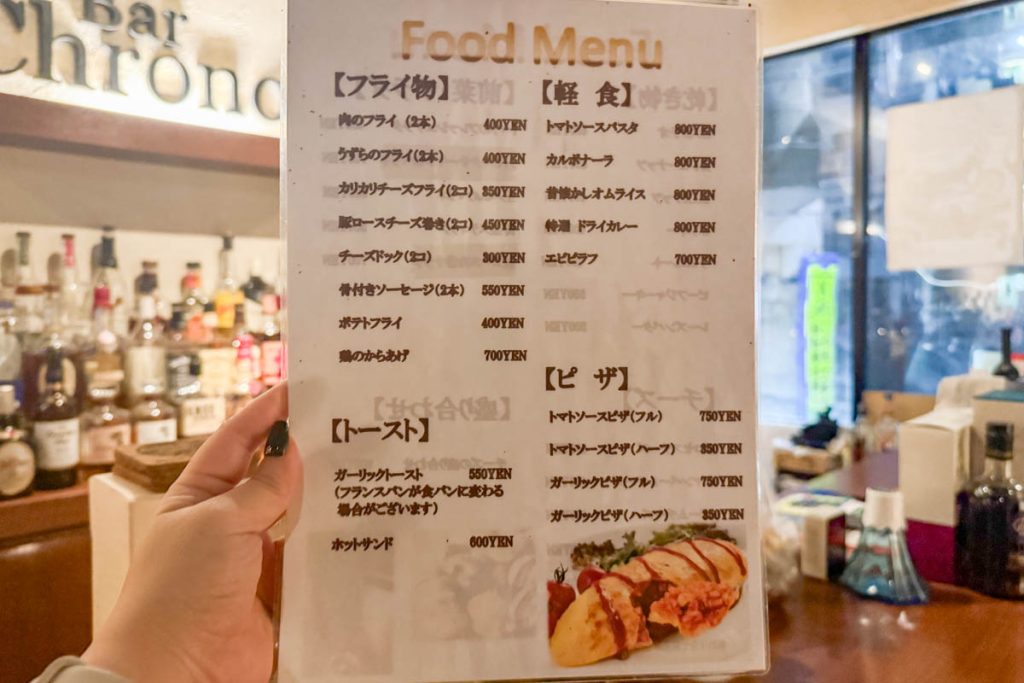 Bar
Chrono
Food Menu
【フライ物】
肉のフライ (2本) 400YEN
うずらのフライ(2本) 400YEN
カリカリチーズフライ(2コ) 350YEN
豚ロースチーズ巻き(2コ) 450YEN
チーズドック(2コ) 300YEN
骨付きソーセージ(2本) 550YEN
ポテトフライ 400YEN
鶏のからあげ 700YEN
【トースト】
ガーリックトースト 550YEN
(フランスパンが食パンに変わる
場合がございます)
ホットサンド 600YEN
【軽 食】
トマトソースパスタ 800YEN
カルボナーラ 800YEN
昔懐かしオムライス 800YEN
特選 ドライカレー 800YEN
エビピラフ 700YEN
【ピ ザ】
トマトソースピザ(フル) 750YEN
トマトソースピザ(ハーフ) 350YEN
ガーリックピザ(フル) 750YEN
ガーリックピザ(ハーフ) 350YEN